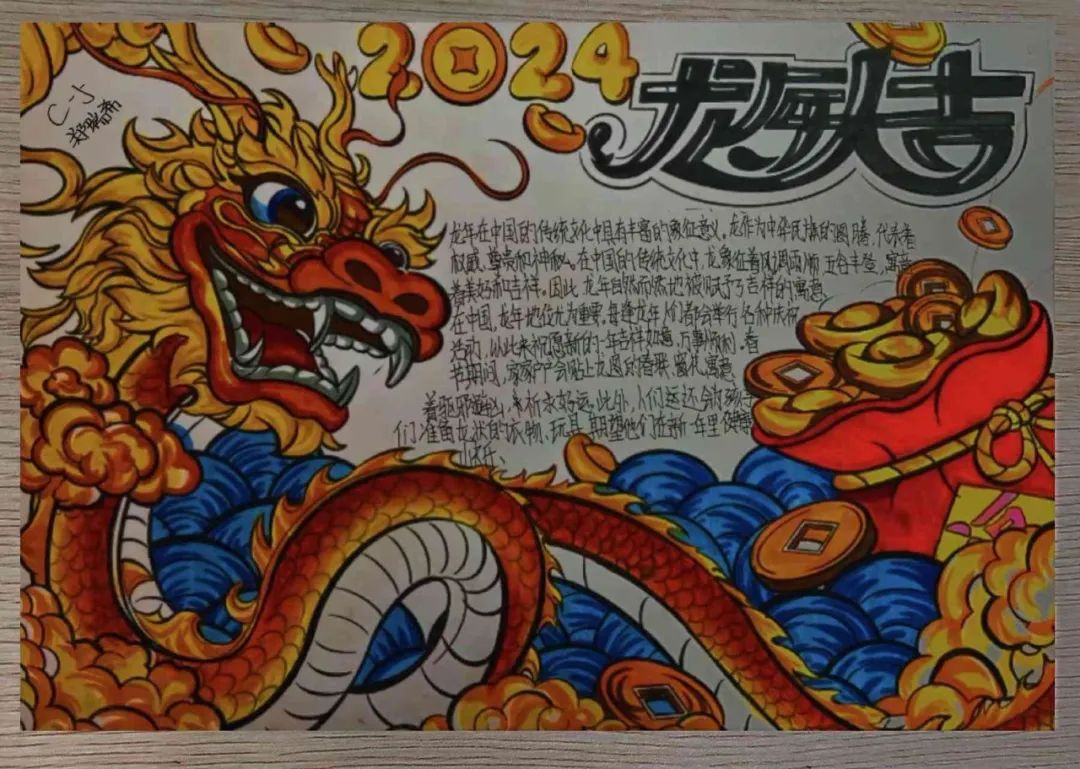 2024
龙年大吉
C-5
龙年在中国的传统文化中具有丰富的象征意义。龙作为中华民族的图腾，代表着
权威、尊贵和神秘。在中国的传统文化中，龙象征着风调雨顺 五谷丰登，寓意
着美好和吉祥。因此 龙年自然而然地被赋予了吉祥的寓意
在中国，龙年地位尤为重要，每逢龙年 人们都会举行 各种庆祝
活动，以此来祝愿新的一年吉祥如意，万事顺利。春
节期间，家家户户会贴上龙图的春联、窗花，寓意
着驱邪避 ，来祈求好运。此外，人们 还会 孩
们准备龙状的衣物、玩具，期望他们在新 年里健康
成长